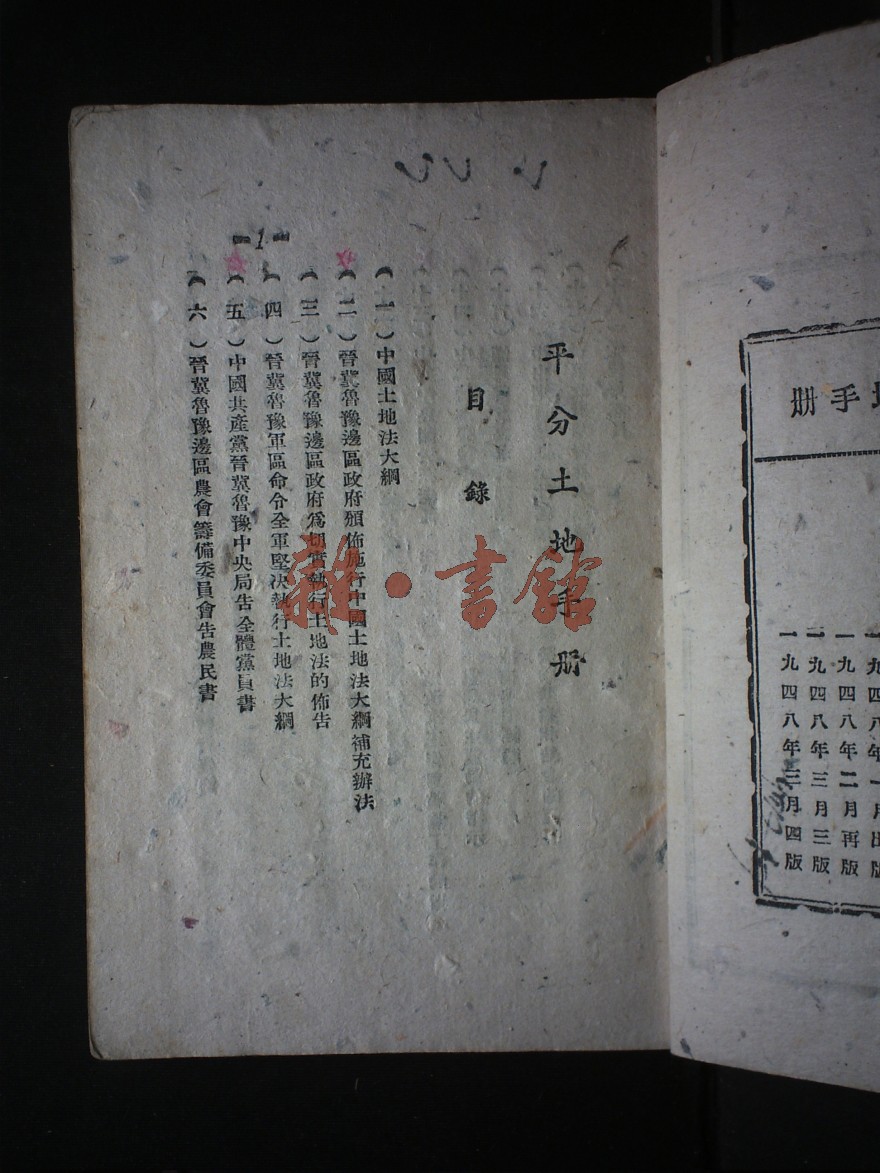 平分土地手册
目錄
(一)中國土地法大綱
(二)晉冀魯豫邊區政府頒佈施行中國土地法大綱補充辦法
(三)晉冀魯豫邊區政府爲切實執行土地法的佈告
(四)晉冀魯豫軍區命令全軍堅決執行土地法大綱
(五)中國共產黨晉冀魯豫中央局告全體黨員書
(六)晉冀魯豫邊區農會籌備委員會告農民書
-1-
手册
一九四八年一月出版
一九四八年二月再版
一九四八年三月三版
一九四八年三月四版
雜·書館